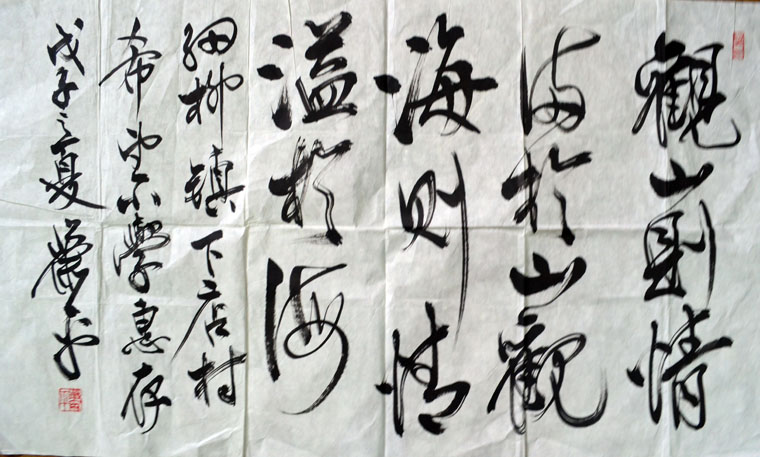 觀山則情
满於山觀
海则情
溢於海
細柳镇下店村
希望小學惠存
戊子之夏